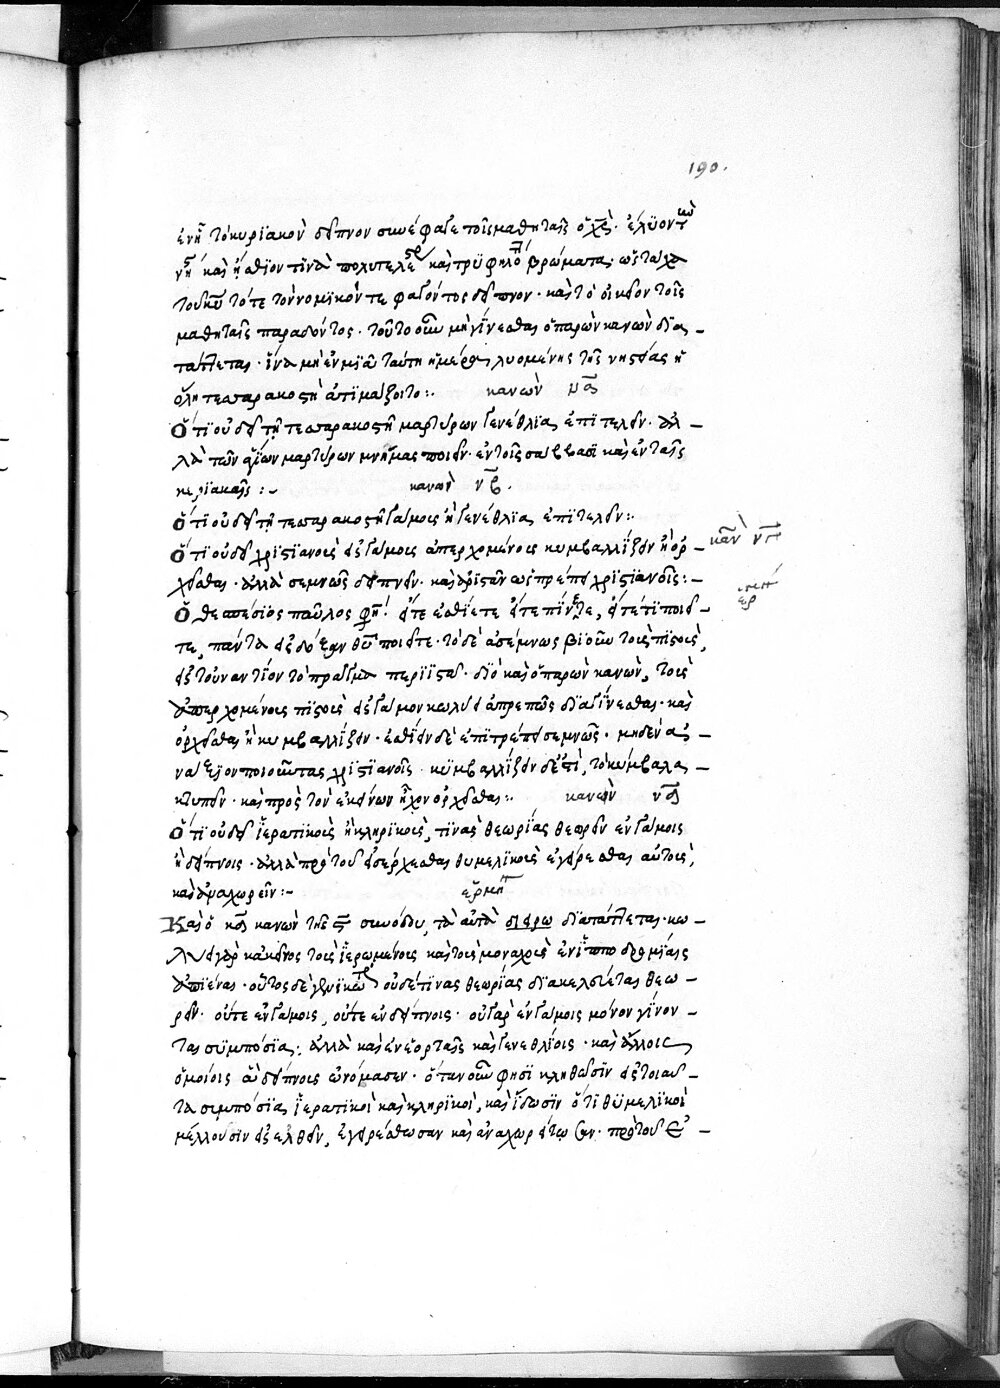 190.
ἐν ᾗ τὸ κυριακὸν δεῖπνον συνέφαγε τοῖς μαθηταῖς ὁ χς̅. ἔλυον τὴν
νη καὶ ἤσθιον τινὰ πολυτελέστερα καὶ τρυφηλότερα βρώματα· ὡς τάχα
τοῦ κυ τότε τὸν νομικόν τε φαγόντος δεῖπνον. καὶ τὸ οἰκεῖον τοῖς
μαθηταῖς παραδόντος. τοῦτο οὖν μὴ γίνεσθαι ὁ παρὼν κανὼν δια-
τάττεται. ἵνα μὴ ἐν μιᾷ ταύτῃ ἡμέρᾳ λυομένης τῆς νηστείας ἡ
ὅλη τεσσαρακοστὴ ἀτιμάζοιτο:. κανὼν να
Ὅτι οὐ δεῖ τῇ τεσσαρακοστῇ μαρτύρων γενέθλια ἐπιτελεῖν. ἀλ-
λὰ τῶν ἁγίων μαρτύρων μνήμας ποιεῖν. ἐν τοῖς σαββασι καὶ ἐν ταῖς
κυριακαῖς:- κανὼν νβ.
Ὅτι οὐ δεῖ τῇ τεσσαρακοστῇ γάμοις ἢ γενέθλια ἐπιτελεῖν:.
Ὅτι οὐ δεῖ χριστιανοὺς εἰς γάμους ἀπερχομένους κυμβαλλίζειν ἢ ὀρ- κανὼν νγ
χεῖσθαι. ἀλλὰ σεμνῶς δειπνεῖν. καὶ ἀριστᾶν ὡς πρέπει χριστιανοῖς:-
Ὁ θεσπέσιος παῦλος φησί. εἴτε ἐσθίετε εἴτε πίνετε, εἴτε τί ποιεῖ-
τε, πάντα εἰς δόξαν θυ ποιεῖτε. τὸ δὲ ἀσέμνως βιοῦν τοὺς πιστοὺς,
εἰς τοὐναντίον τὸ πρᾶγμα περιιστᾶ. διὸ καὶ ὁ παρὼν κανὼν, τοὺς
ἀπερχομένους πιστοὺς εἰς γάμον κωλύει ἀπρεπῶς διαγίνεσθαι. καὶ
ὀρχεῖσθαι ἢ κυμβαλλίζειν. ἐσθίειν δὲ ἐπιτρέπει σεμνῶς. μηδὲν ἀ-
νάξιον ποιοῦντας χριστιανοῖς. κυμβαλλίζειν δέ ἐστι, τὸ κύμβαλα
κτυπεῖν. καὶ πρὸς τὸν ἐκείνων ἦχον ὀρχεῖσθαι:. κανὼν νδ
Ὅτι οὐ δεῖ ἱερατικοὺς ἢ κληρικοὺς, τινὰς θεωρίας θεωρεῖν ἐν γάμοις
ἢ δείπνοις. ἀλλὰ πρὸ τοῦ εἰσέρχεσθαι θυμελικοὺς ἐγείρεσθαι αὐτοὺς,
καὶ ἀναχωρεῖν:- ἑρμη
Καὶ ὁ κδ κανὼν τῆς ς συνόδου, τὰ αὐτὰ διατάττεται. κω-
λύει γὰρ κἀκεῖνος τοὺς ἱερωμένους καὶ τοὺς μοναχοὺς ἐν ἱπποδρομίαις
ἀπιέναι. οὗτος δὲ γενικώτερον οὐδέ τινας θεωρίας διακελεύεται θεω-
ρεῖν. οὔτε ἐν γάμοις, οὔτε ἐν δείπνοις. οὐ γὰρ ἐν γάμοις μόνον γίνον-
ται συμπόσια. ἀλλὰ καὶ ἐν ἑορταῖς καὶ γενεθλίοις. καὶ ἄλλοις
ὁμοίοις ἃ δείπνοις ὠνόμασεν. ὅταν οὖν φησι κληθῶσιν εἰς τοιαῦ-
τα συμπόσια, ἱερατικοὶ καὶ κληρικοί, καὶ ἴδωσιν ὅτι θυμελικοὶ
μέλλουσιν εἰσελθεῖν, ἐγειρέσθωσαν καὶ ἀναχωρείτωσαν. πρὸ τοῦ ἐ-